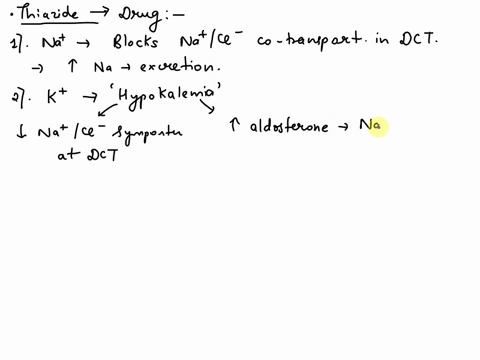 · Thiazide → Drug:-
1]. Na⁺ → Blocks Na⁺/Ce⁻ co-transport in DCT.
→ ↑ Na → excretion.
2]. K⁺ → 'Hypokalemia'
↓ Na⁺/Ce⁻ Symporter ↑ aldosterone → Na
at DCT